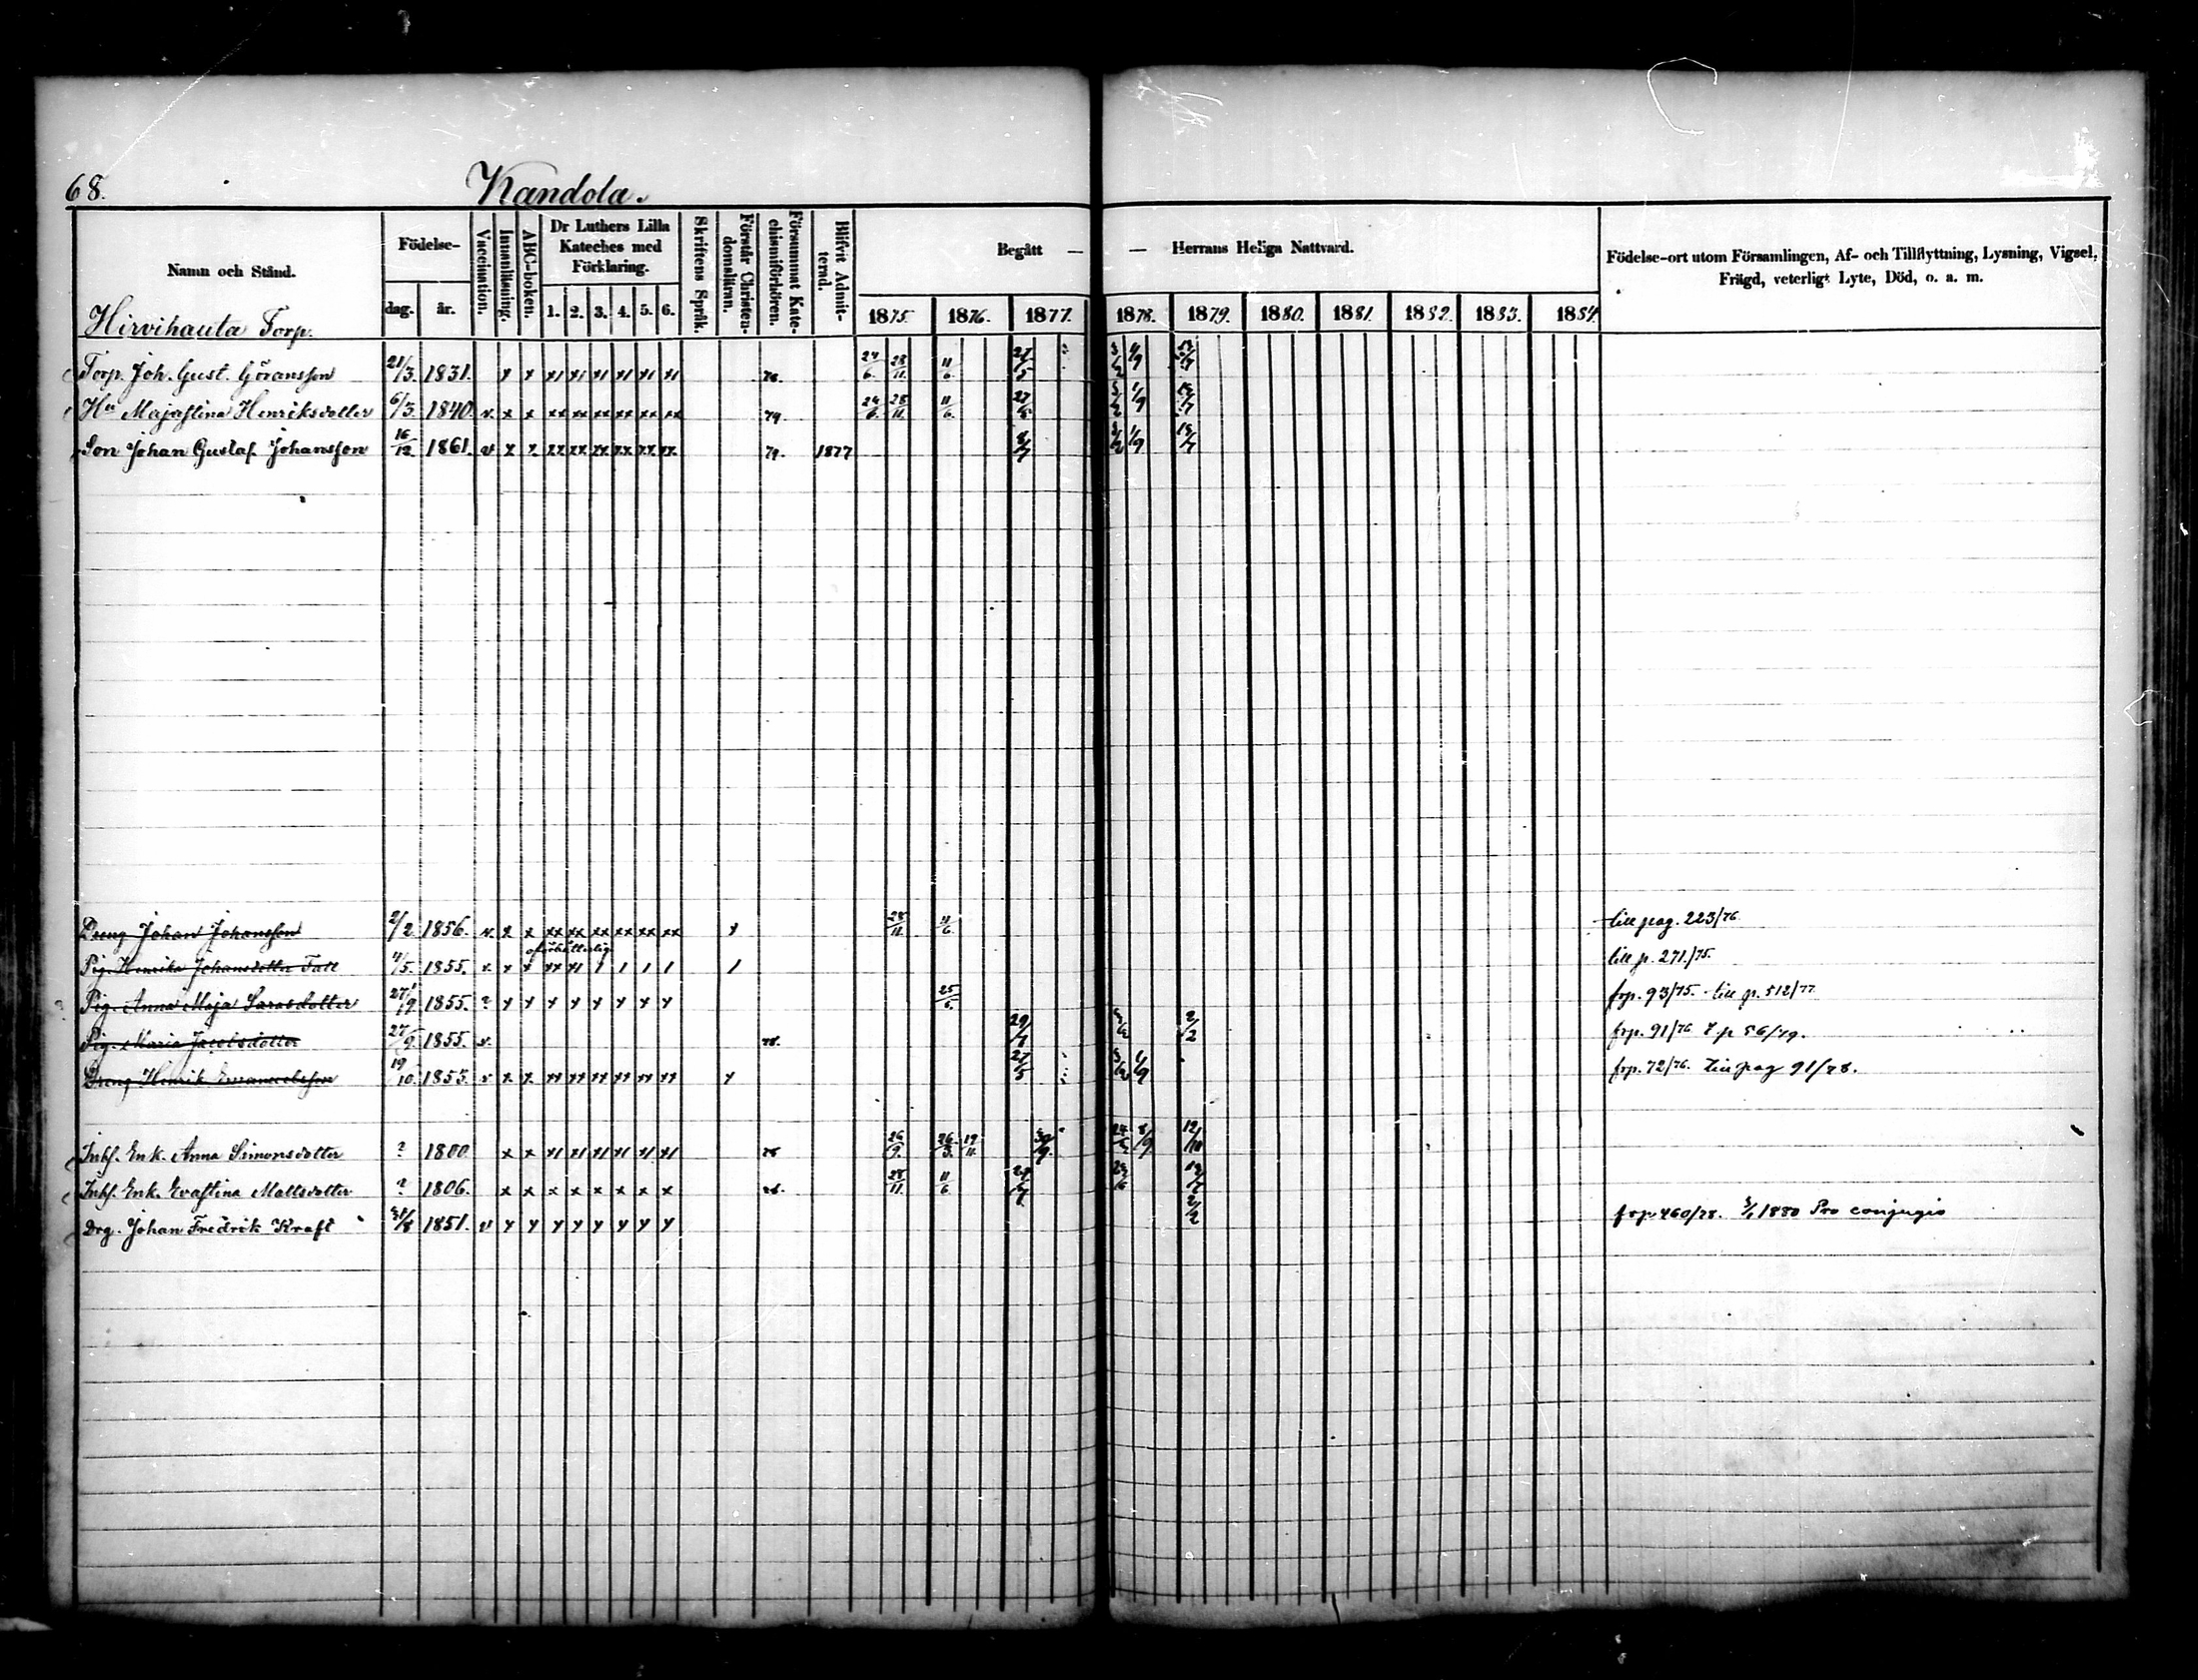 68.
Kandola.
Namn och Stånd.
Födelse-
dag. år.
Vaccination.
Innanläsning.
ABC-boken.
Dr Luthers Lilla Kateches med Förklaring.
1. 2. 3. 4. 5. 6.
Skriftens Språk.
Förstår Christendomsläran.
Försummat Katechismiförhören.
Blifvit Admitterad.
Begått — — Herrans Heliga Nattvard.
1875. 1876. 1877. 1878. 1879. 1880. 1881. 1882. 1883. 1884.
Födelse-ort utom Församlingen, Af- och Tillflyttning, Lysning, Vigsel,
Frägd, veterligt Lyte, Död, o. a. m.
Hirvihauta Torp.
Torp. Joh. Gust. Göransson 21/3. 1831. x x x1 x1 x1 x1 x1 x1 76. 24/6. 28/11. 11/6. 27/5
Hu Majastina Henriksdotter 6/3. 1840. v. x x xx xx xx xx xx xx 79. 24/6. 28/11. 11/6. 27/5
Son Johan Gustaf Johansson 16/12 1861. v x x xx xx xx xx xx xx 79. 1877
Dreng Johan Johansson 2/2 1856. v. x x xx xx xx xx xx xx 28/11. 11/6. till pag. 223/76
Pig. Henrika Johansdotter Tall 4/5. 1855. v. x x 1 1 1 1 1 till p. 271./75.
Pig. Anna Maja Sarasdotter 1855. ? x x x x x x x x 25/6. frp. 93/75. till p. 512/77
Pig. Maria Jacobsdotter 27/9 1855. v. 78. 2/2 frp. 91/76 T. p 56/79.
Dreng Henrik Emanuelsson 19/10. 1855 v x x xx xx xx xx xx xx 27/5 frp. 72/76. Till pag 91/78.
Inhs. Enk. Anna Simonsdotter ? 1800. x x x1 x1 x1 x1 x1 x1 26/9. 26/3. 19/11. 30/9. 12/10
Inhs. Enk. Evastina Mattsdotter ? 1806. x x x x x x x x 28/11. 11/6
Drg. Johan Fredrik Kraft 1851. v x x x x x x x x 2/2 frp. 460/78. 1880 Pro conjugio